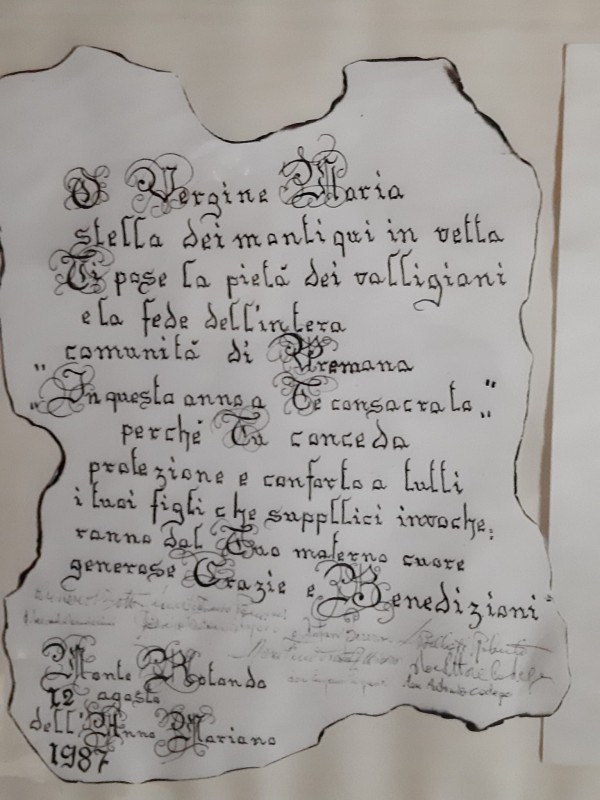 O Vergine Maria
stella dei monti qui in vetta
Ti pose la pietà dei valligiani
e la fede dell'intera
comunità di Premana
"In questo anno a Te consacrato"
perchè Tu conceda
protezione e conforto a tutti
i tuoi figli che suppllici invoche:
ranno dal Tuo materno cuore
generose Grazie e Benedizioni
Monte Rotondo
12 agosto
dell'Anno Mariano
1987